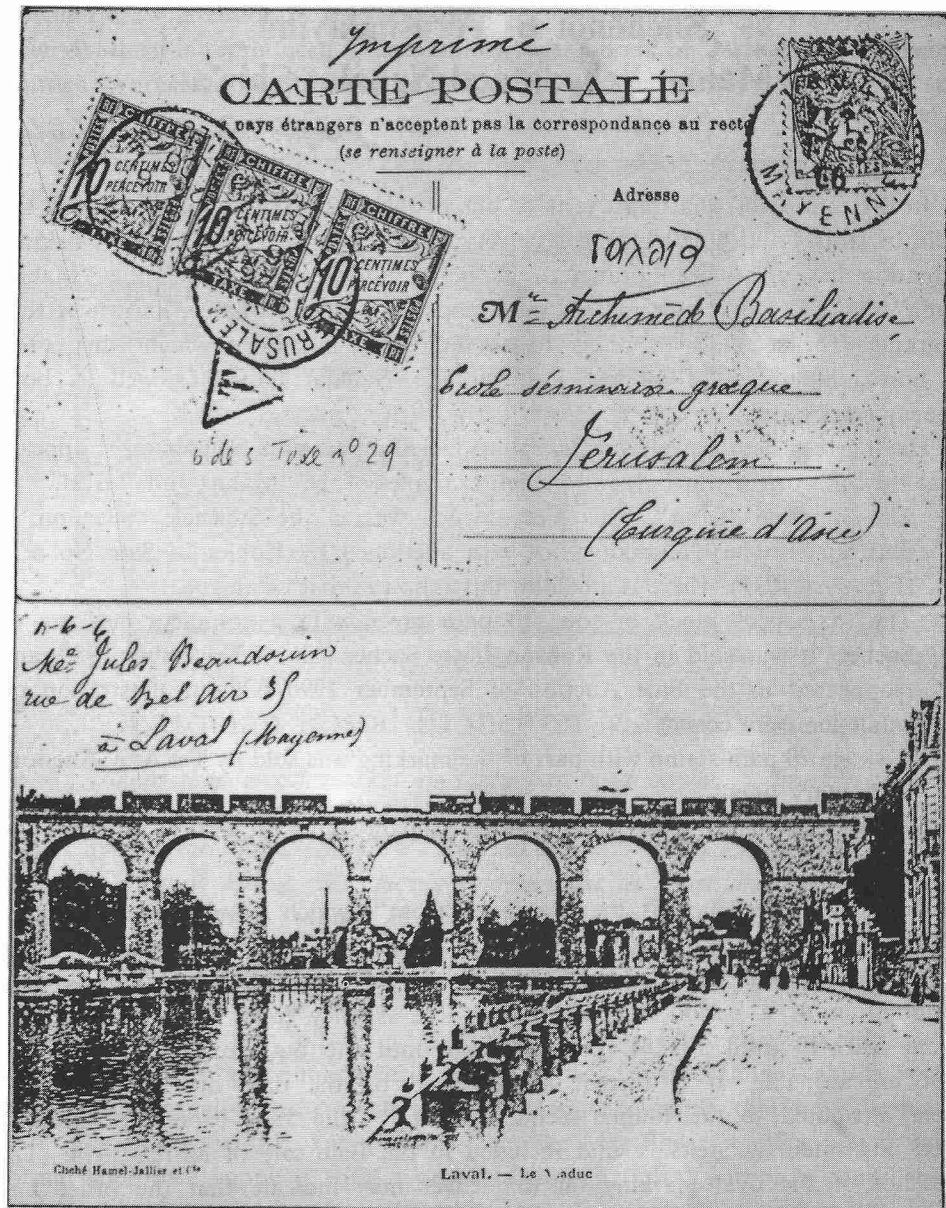 Imprimé
CARTE POSTALE
pays étrangers n'acceptent pas la correspondance au recto
(se renseigner à la poste)
CHIFFRE
10 CENTIMES
PERCEVOIR
TAXE
CHIFFRE
10 CENTIMES
PERCEVOIR
TAXE
CHIFFRE
10 CENTIMES
PERCEVOIR
TAXE
JERUSALEM
T
MAYENNE
06
POSTES
Adresse
Me Archimède Basiliadise
Ecole séminaux grecque
Jérusalem
(Turquie d'Asie)
6 de 5 Taxe no 29
Me Jules Beaudouin
rue de Bel Air 35
à Laval (Mayenne)
Cliché Hamel-Jallier et Cie
Laval. — Le Viaduc